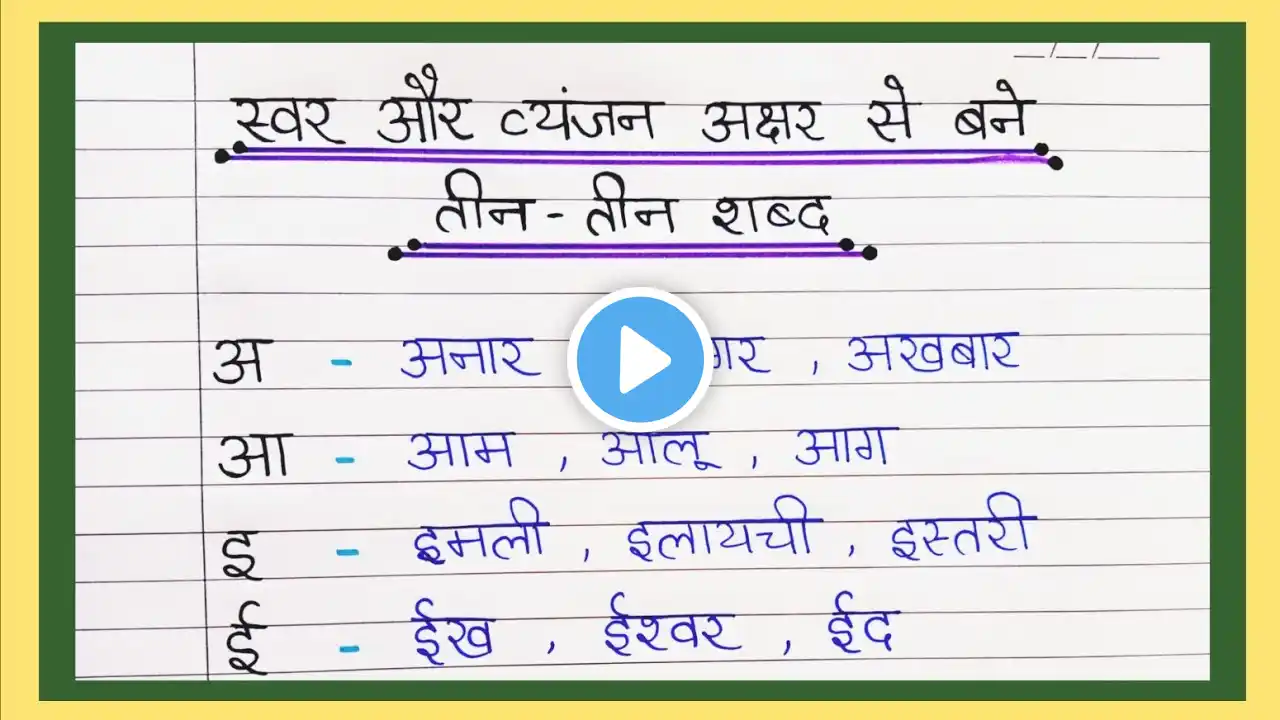 स्वर और व्यंजन अक्षर से बने
तीन - तीन शब्द
अ - अनार , अखबार
आ - आम , आलू , आग
इ - इमली , इलायची , इस्तरी
ई - ईख , ईश्वर , ईद